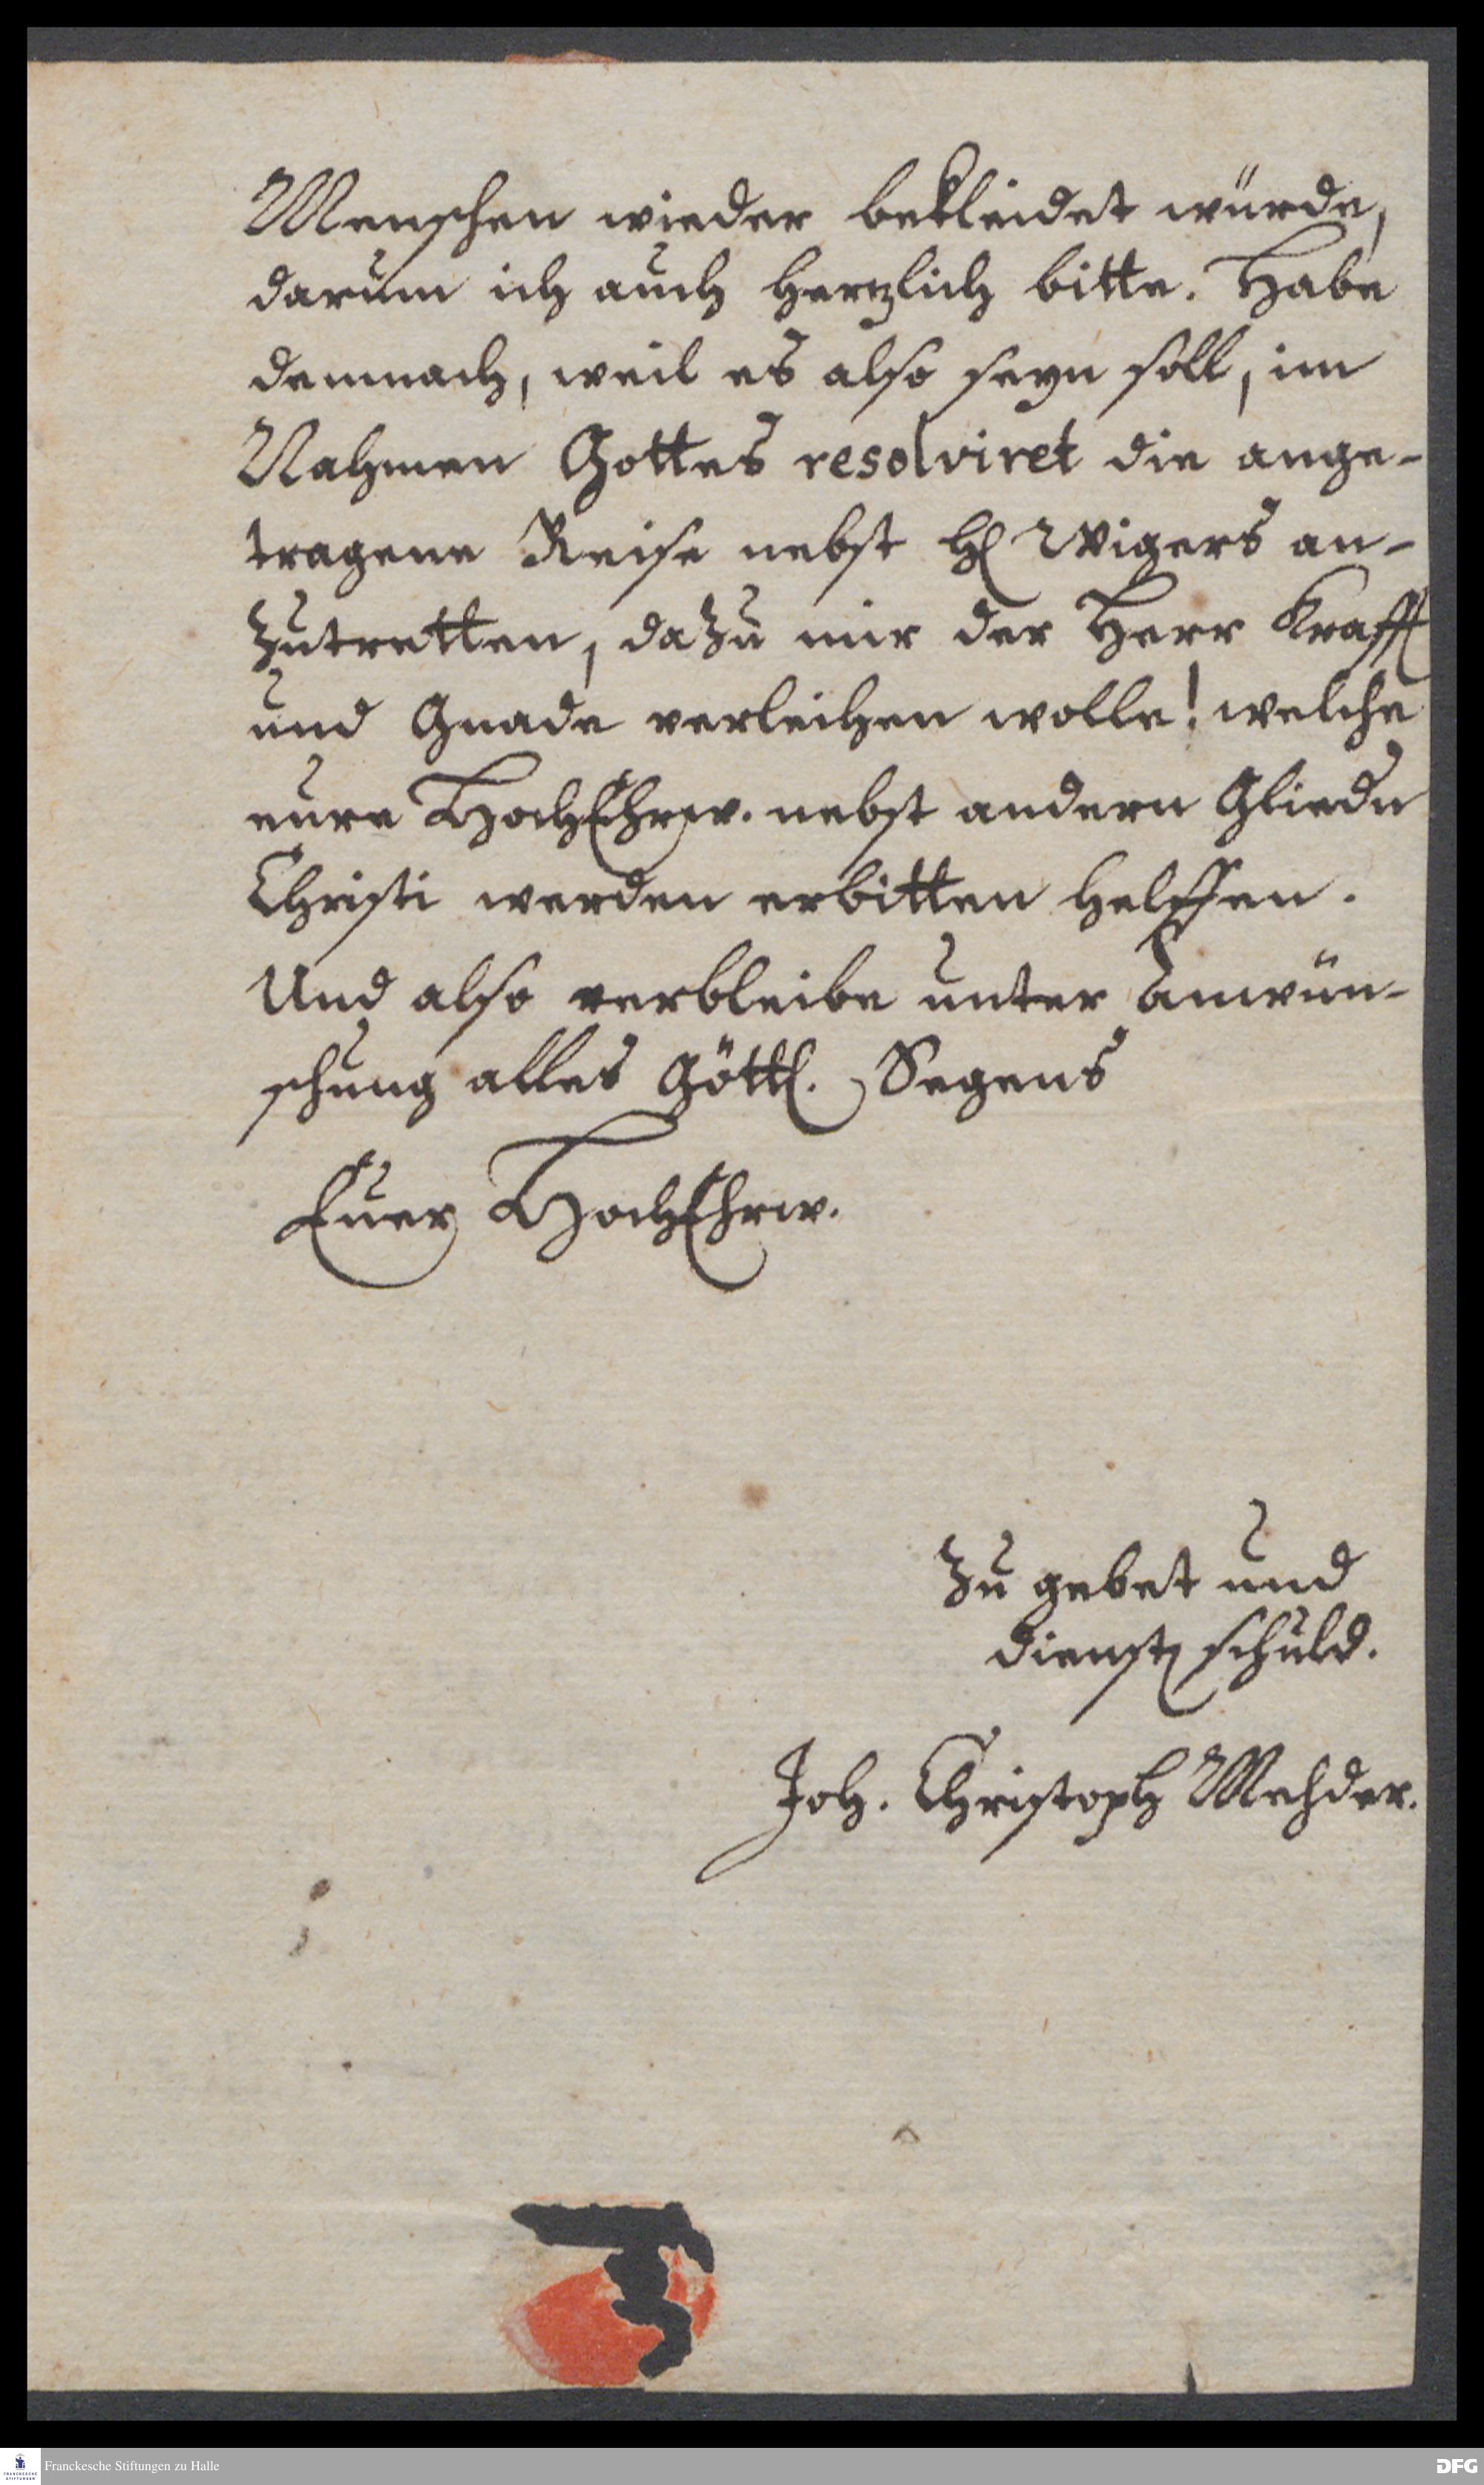 Menschen wieder bekleidet würde,
darum ich auch hertzlich bitte. Habe
demnach, weil es also seyn soll, im
Nahmen Gottes resolviret die ange-
tragene Reise nebst H. Wigers an-
zutretten, dazu mir der Herr Krafft
und Gnade verleihen wolle! welche
eure HochEhrw. nebst andern Gliedn
Christi werden erbitten helffen.
Und also verbleibe unter Anwün-
schung alles Göttl. Segens
Euer HochEhrw.
zu gebet und
dienst schuld.
Joh. Christoph Mehder.
FRANCKESCHE
STIFTUNGEN
Franckesche Stiftungen zu Halle
DFG